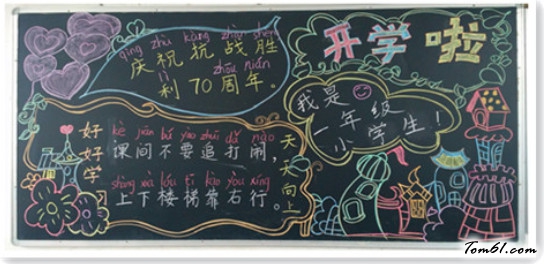 qìng zhù kàng zhàn shèng
庆祝抗战胜
lì zhōu nián
利70周年。
开学啦
我是
一年级
小学生！
好好学
天天向上
kè jiān bú yào zhuī dǎ nào
课间不要追打闹，
shàng xià lóu tī kào yòu xíng
上下楼梯靠右行。
Tom61.com